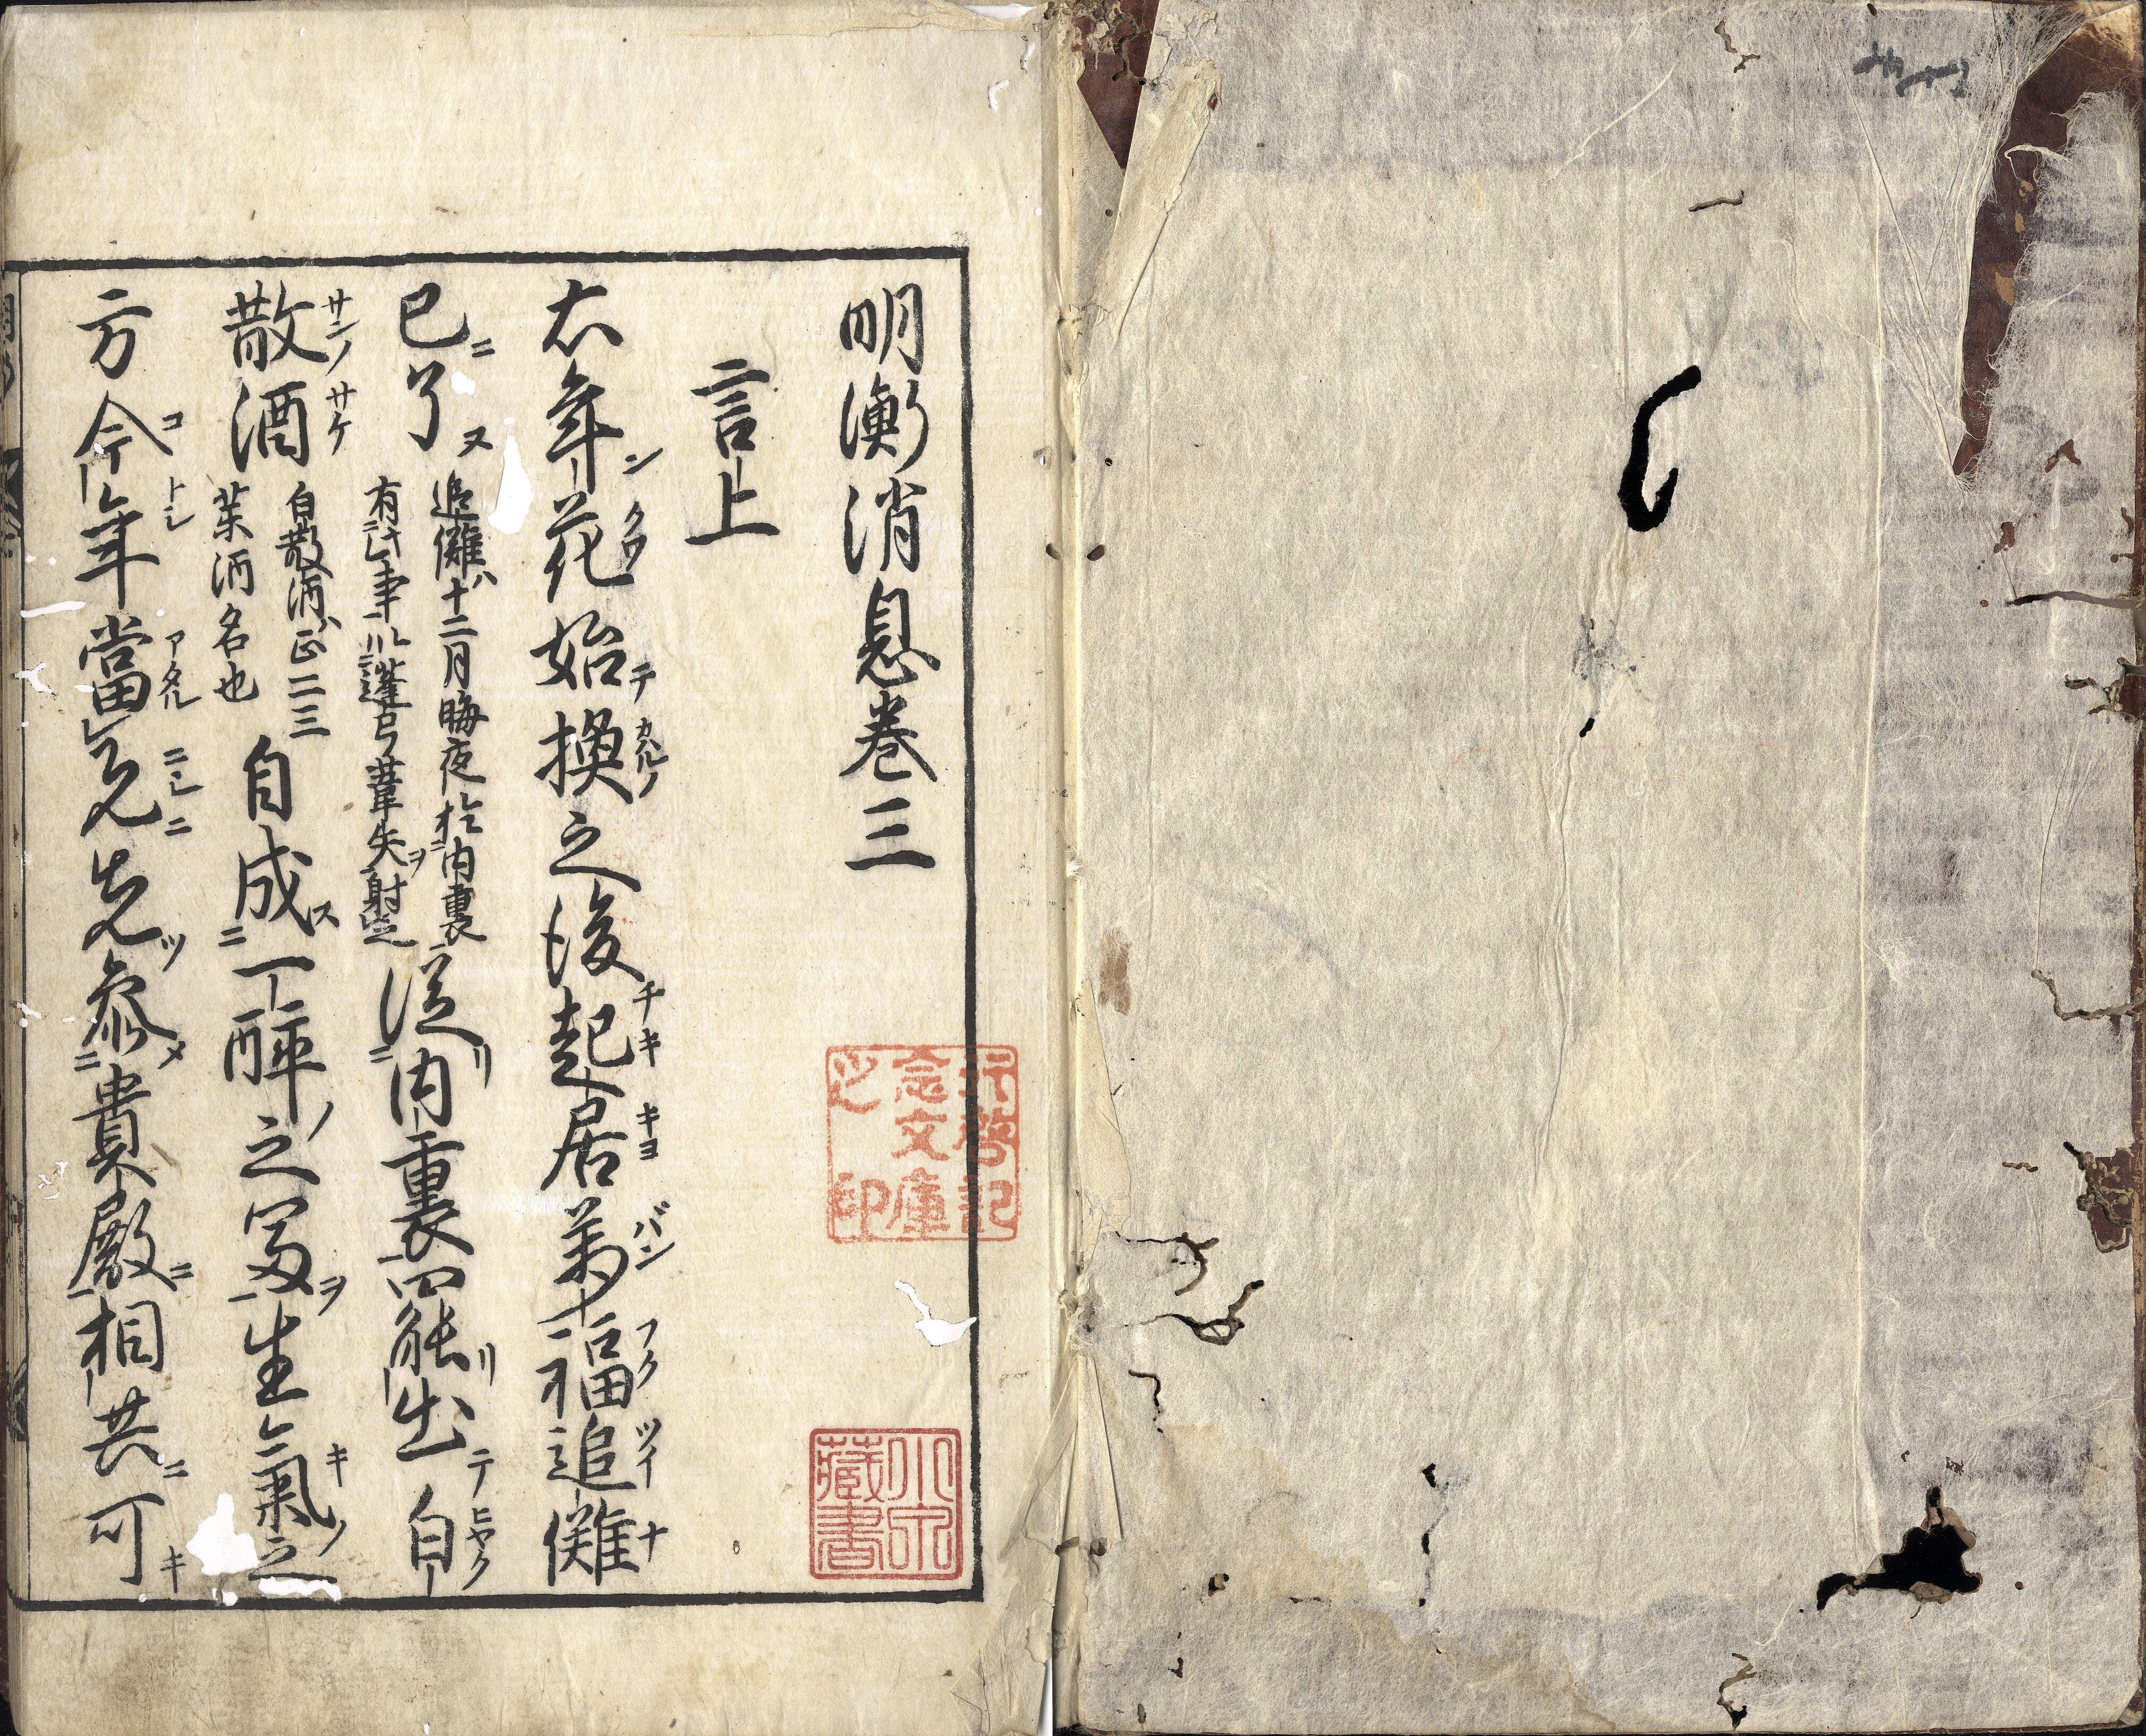 明衡消息巻三
言上
右年花始換之後起居萬福追儺
已了
追儺ハ十二月晦夜於内裏
有此事以蓬弓葦矢ヲ射之
従内裏罷出白
散酒
白散酒ハ正二三
薬酒名也
自成一酔之冨生氣之
方今年當兌先参貴殿相共可
行啓記
念文庫
之印
藏書